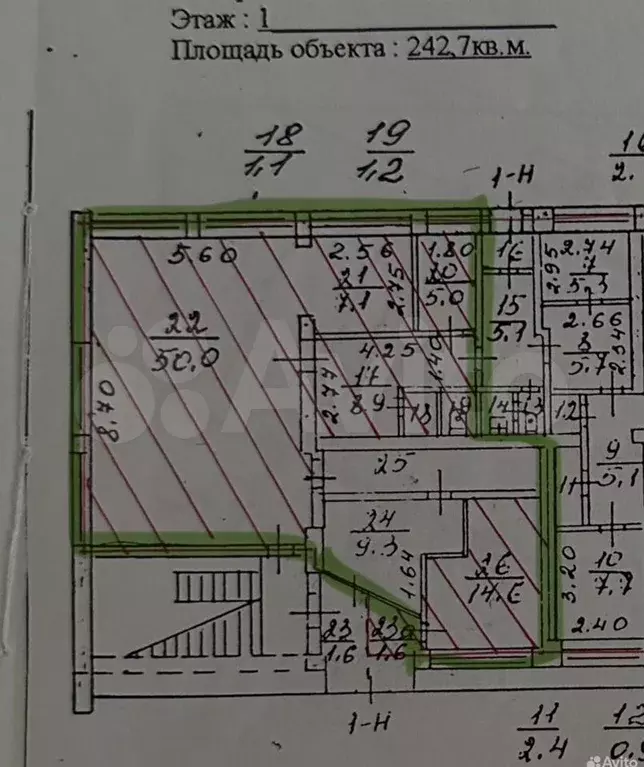 Этаж : 1
Площадь объекта : 242,7кв.м.
18
1,1
19
1,2
1-Н
5.60
2.56
1.80
16
2.74
2.95
7
5.3
21
7.1
2.75
20
5.0
15
5.1
2.66
22
50.0
8
5.7
2.34
4.25
1.40
2.77
17
8.9
18
19
14
13
12
8.70
25
9
5,1
11
24
9.3
1.64
26
14.6
3.20
10
7.7
2.40
23
1.6
23а
1.6
1-Н
11
2.4
12
Avito
Avito